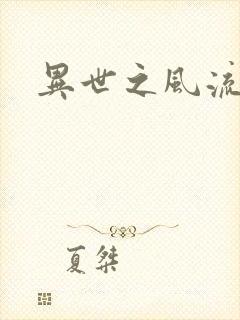 異世之風流
夏桀